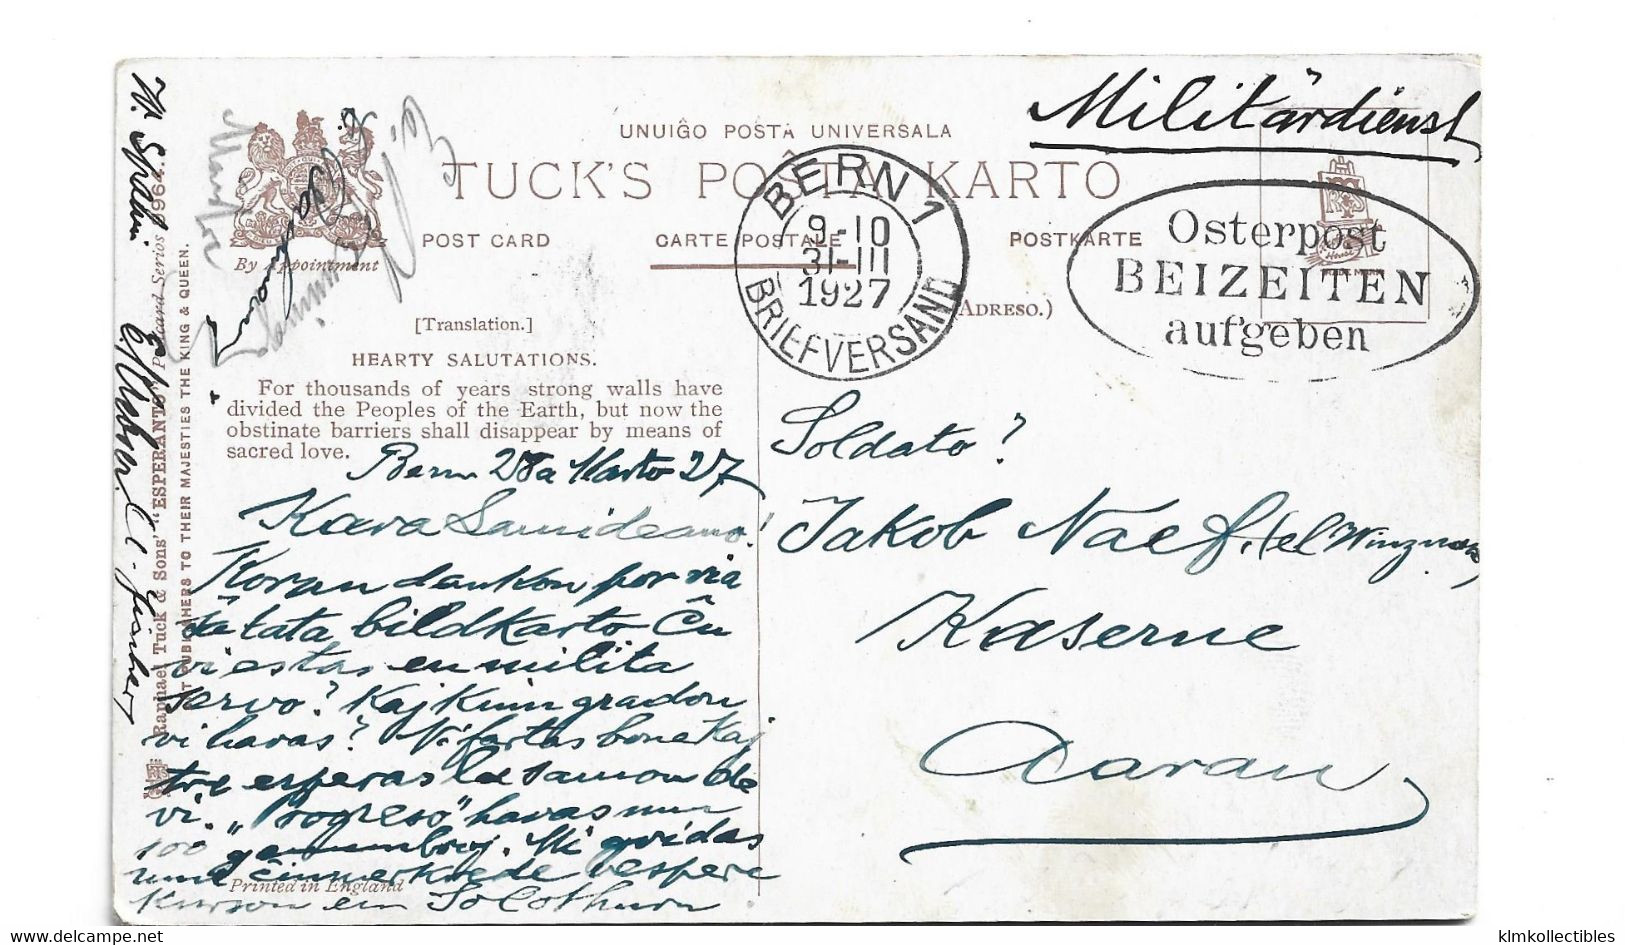 Militärdienst
UNUIĜO POŜTA UNIVERSALA
TUCK'S POŜTA KARTO
POST CARD CARTE POSTALE POSTKARTE
By Appointment
(ADRESO.)
BERN 1
9-10
31-III
1927
BRIEFVERSAND
Osterpost
BEIZEITEN
aufgeben
TRADE MARK
[Translation.]
HEARTY SALUTATIONS.
For thousands of years strong walls have
divided the Peoples of the Earth, but now the
obstinate barriers shall disappear by means of
sacred love.
Bern 28a Marto 27
Kara Samideano!
Koran dankon por via
ŝatata bildkarto. Ĉu
vi estas en milita
servo? Kaj kiun gradon
vi havas? Ni fartas bone kaj
tre esperas la samon de
vi. „Progreso" havas nun
100 gemembroj. Mi gvidas
nun ĉiumerkrede vespere
kurson en Solothurn
Printed in England
Soldato?
Jakob Naef,
Kaserne
Aarau
Raphael Tuck & Sons' "ESPERANTO" Postcard Series 9964.
ART PUBLISHERS TO THEIR MAJESTIES THE KING & QUEEN.
klmkollectibles
www.delcampe.net